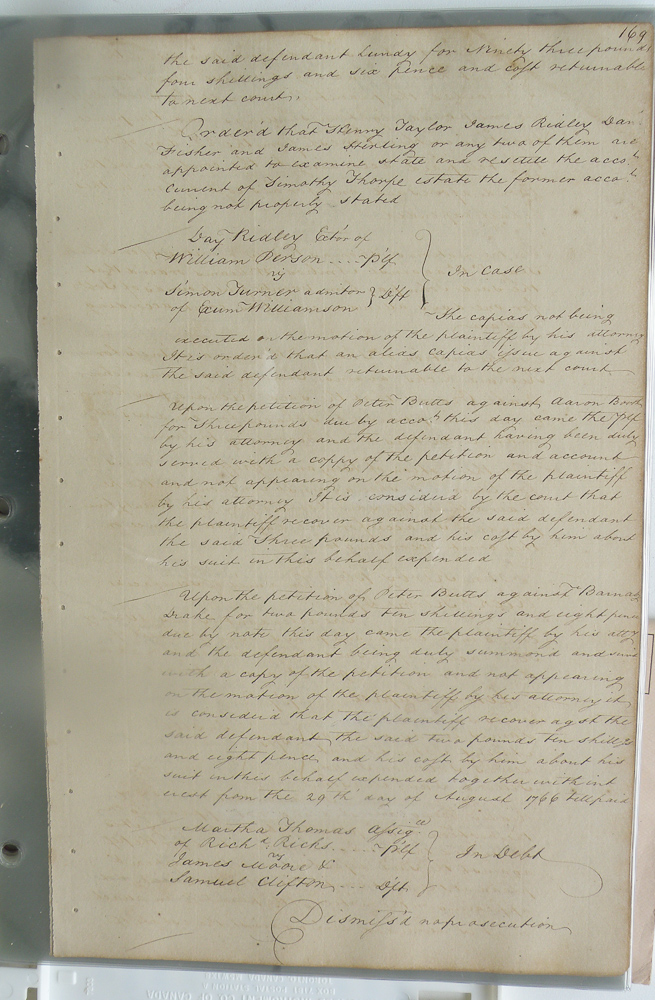 169
the said defendant Lundy for Ninety three pounds
four shillings and six pence and cost returnable
to next court.
Order'd that Henry Taylor James Ridley Dan
Fisher and James Stirling or any two of them are
appointed to examine state and resettle the acco.t
current of Timothy Thorpe estate the former acco.t
being not properly stated
Day Ridley Ext'or of
William Person .... Plf
vs
In Case
Simon Turner admitor } Dft
of Exum Williamson
The capias not being
executed on the motion of the plaintiff by his attorney
It is order'd that an aleas capias issue against
the said defendant returnable to the next court
Upon the petition of Peter Butts against Aaron Booth
for Three pounds due by acco.t this day came the Plf
by his attorney and the defendant having been duly
served with a coppy of the petition and account
and not appearing on the motion of the plaintiff
by his attorney It is considerd by the court that
the plaintiff recover against the said defendant
the said Three pounds and his cost by him about
his suit in this behalf expended
Upon the petition of Peter Butts against Barnab
Drake for two pounds ten shillings and eight pence
due by note this day came the plaintiff by his atty
and the defendant being duly summond and
with a copy of the petition and not appearing
on the motion of the plaintiff by his attorney it
is considerd that the plaintiff recover agst the
said defendant the said two pounds ten shillgs
and eight pence and his cost by him about his
suit in this behalf expended together with int
erest from the 29th day of August 1766 till paid
Martha Thomas Assigee
of Richd Ricks .... Plf
vs
In Debt
James Moore &
Samuel Clifton .... Dft
Dismiss'd no prosecution